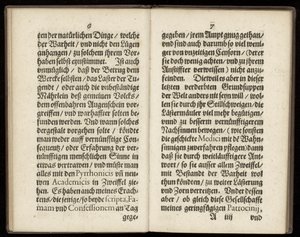 6
ten der natürlichen Dinge / welche
der Warheit / und nicht den Lügen
anhangen / zu solchem ihrem Vor-
haben selbst einstimmet. Ist auch
unmüglich / daß der Betrug dem
Werck selbsten / das Laster der Tu-
gend / oder auch die unbeständige
Mährlein deß gemeinen Volcks /
dem offenbahren Augenschein vor-
gezogen / und warhaffter solten be-
funden werden. Und wann solches
dergestalt vorgehen solte / könte
man weder auff vernünfftige Con-
sequenz / oder Erfahrung der ver-
nünfftigen menschlichen Sinne in
etwas vertrauen / und müste man
alles mit den Pyrrhonicis und
neuen Academicis in Zweiffel zie-
hen. Es haben auch meines Erach-
tens / die jenige / so beyde scripta, Fa-
mam und Confessionem an Tag
gege-
7
gegeben / irem Ampt gnug gethan /
und sind auch darumb so viel weni-
ger von unzeitigen Censorn / (derer
sie doch wenig achten / und zu ihrem
Außrüffer verweisen) nicht anzu-
feinden. Dieweil es aber in dieser
letzten verderbten Grundsuppen
der Welt anders nit seyn wil / wol-
len sie durch ihr Stillschweigen / die
Lästermäuler viel mehr begütigen /
und zu bessern und vernünfftigerem
Nachsinnen bewegen / (wie sonsten
die geschickte Medici mit den Wahn-
sinnigen zuverfahren pflegen) dann
daß sie durch weitläufftiger Ant-
wort / so sie ausser allem Zweiffel /
mit Bestande der Warheit wol
thun könden / zu weiter Lästerung
und Zorn verreitzen. Und der essen
aber / ob gleich diese Gesellschafft
meines geringfügigen Patrocinij,
A iiij und